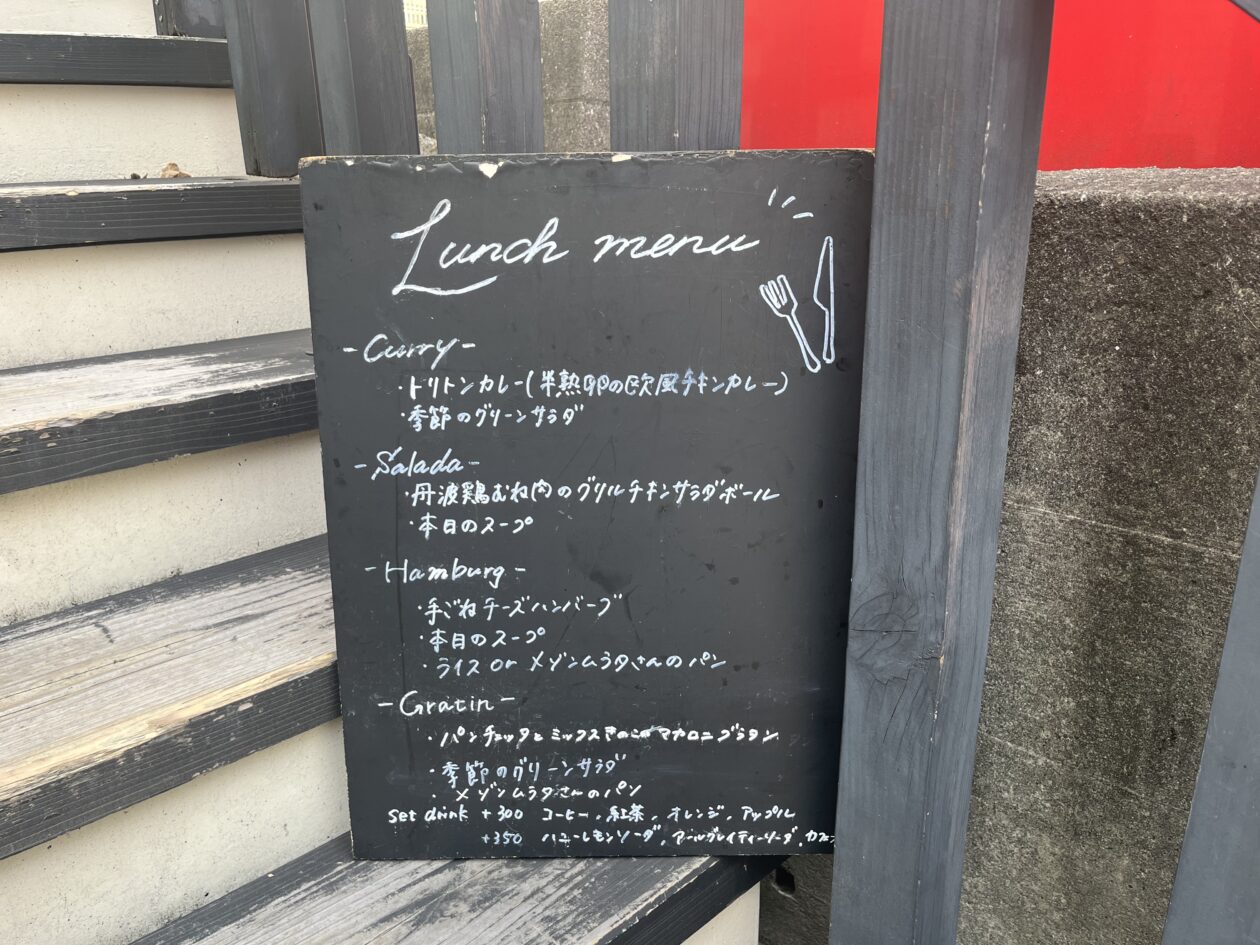 Lunch menu
-Curry-
・トリトンカレー(半熟卵の欧風チキンカレー)
・季節のグリーンサラダ
-Salada-
・丹波鶏むね肉のグリルチキンサラダボール
・本日のスープ
-Hamburg-
・手ごねチーズハンバーグ
・本日のスープ
・ライス or メゾンムラタさんのパン
-Gratin-
・パンチェッタとミックスきのこのマカロニグラタン
・季節のグリーンサラダ
・メゾンムラタさんのパン
set drink +300 コーヒー, 紅茶, オレンジ, アップル
+350 ハニーレモンソーダ, アールグレイティーソーダ, カフェ